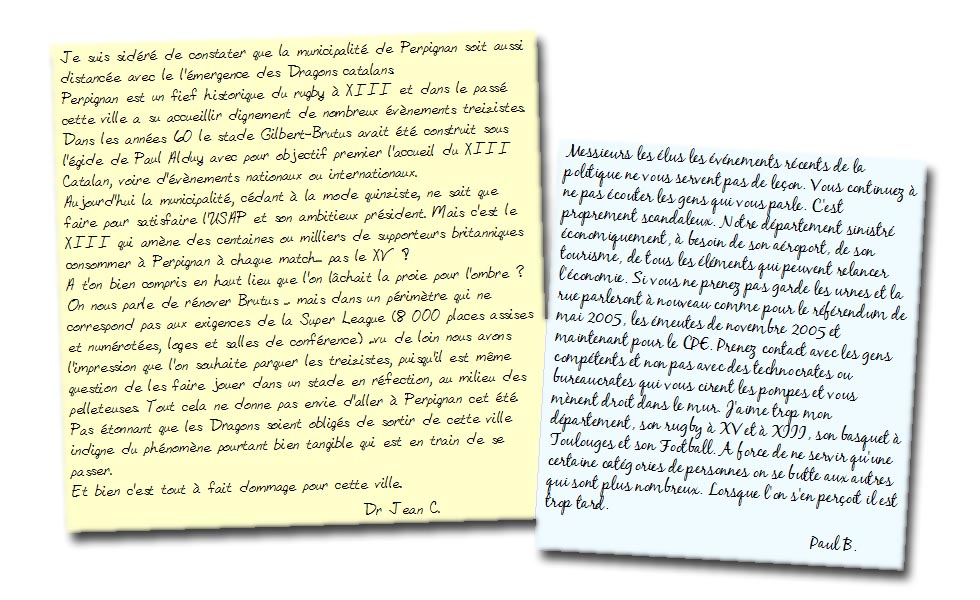 Je suis sidéré de constater que la municipalité de Perpignan soit aussi
distancée avec le l'émergence des Dragons catalans
Perpignan est un fief historique du rugby à XIII et dans le passé
cette ville a su accueillir dignement de nombreux évènements treizistes.
Dans les années 60 le stade Gilbert-Brutus avait été construit sous
l'égide de Paul Alduy avec pour objectif premier l'accueil du XIII
Catalan, voire d'évènements nationaux ou internationaux.
Aujourd'hui la municipalité, cédant à la mode quinziste, ne sait que
faire pour satisfaire l'USAP et son ambitieux président. Mais c'est le
XIII qui amène des centaines ou milliers de supporteurs britanniques
consommer à Perpignan à chaque match... pas le XV ?
A t'on bien compris en haut lieu que l'on lâchait la proie pour l'ombre ?
On nous parle de rénover Brutus ... mais dans un périmètre qui ne
correspond pas aux exigences de la Super League (8 000 places assises
et numérotées, loges et salles de conférence) ...vu de loin nous avons
l'impression que l'on souhaite parquer les treizistes, puisqu'il est même
question de les faire jouer dans un stade en réfection, au milieu des
pelleteuses. Tout cela ne donne pas envie d'aller à Perpignan cet été.
Pas étonnant que les Dragons soient obligés de sortir de cette ville
indigne du phénomène pourtant bien tangible qui est en train de se
passer.
Et bien c'est tout à fait dommage pour cette ville.
Dr Jean C.
Messieurs les élus les événements récents de la
politique ne vous servent pas de leçon. Vous continuez à
ne pas écouter les gens qui vous parle. C'est
proprement scandaleux. Notre département sinistré
économiquement, à besoin de son aéroport, de son
tourisme, de tous les éléments qui peuvent relancer
l'économie. Si vous ne prenez pas garde les urnes et la
rue parleront à nouveau comme pour le référendum de
mai 2005, les émeutes de novembre 2005 et
maintenant pour le CPE. Prenez contact avec les gens
compétents et non pas avec des technocrates ou
bureaucrates qui vous cirent les pompes et vous
mènent droit dans le mur. J'aime trop mon
département, son rugby à XV et à XIII, son basquet à
Toulouges et son Football. A force de ne servir qu'une
certaine catégories de personnes on se butte aux autres
qui sont plus nombreux. Lorsque l'on s'en perçoit il est
trop tard.
Paul B.